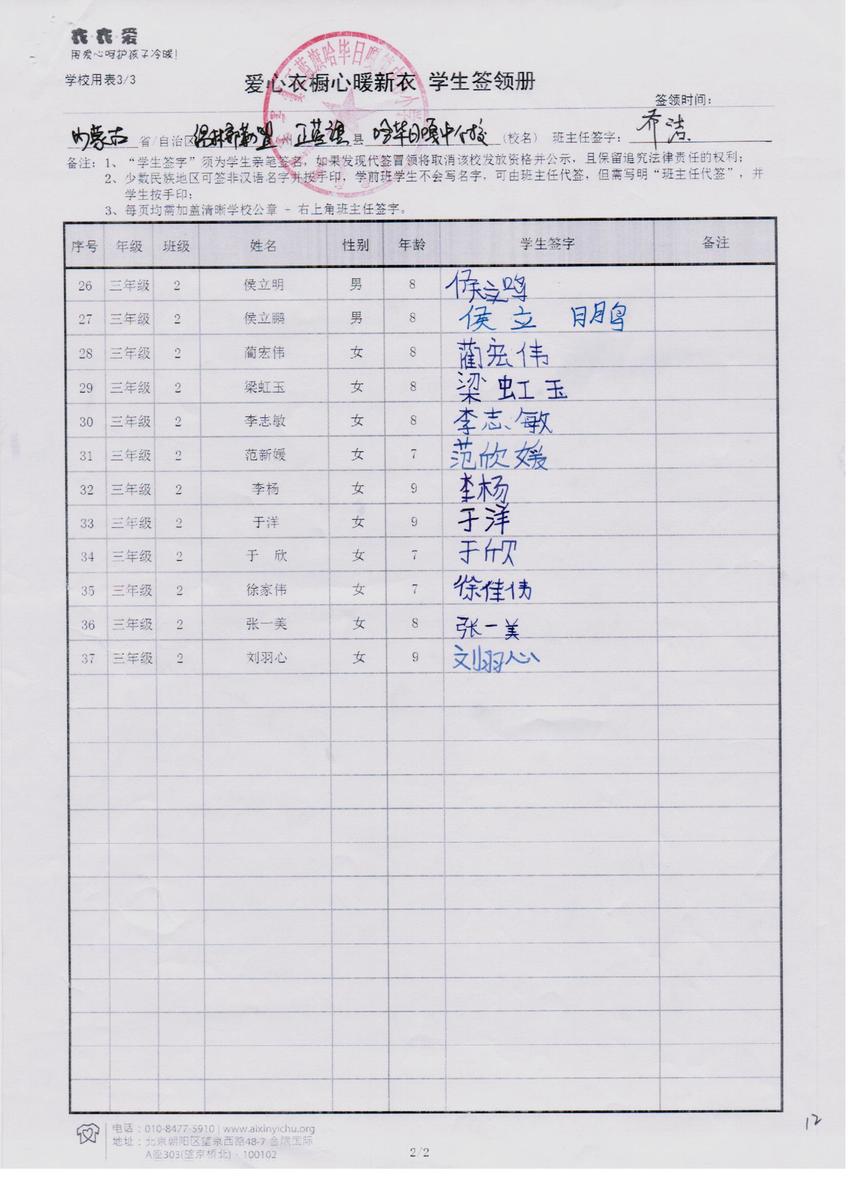 衣衣爱
用爱心呵护孩子冷暖!
学校用表3/3
爱心衣橱心暖新衣 学生签领册
签领时间:
内蒙古 省/自治区 锡林郭勒盟 州 正蓝旗 县 哈毕日嘎中心校 (校名) 班主任签字: 乔洁
备注: 1、“学生签字”须为学生亲笔签名, 如果发现代签冒领将取消该校发放资格并公示, 且保留追究法律责任的权利;
2、少数民族地区可签非汉语名字并按手印, 学前班学生不会写名字, 可由班主任代签, 但需写明“班主任代签”, 并
学生按手印;
3、每页均需加盖清晰学校公章 + 右上角班主任签字。
序号 年级 班级 姓名 性别 年龄 学生签字 备注
26 三年级 2 侯立明 男 8
27 三年级 2 侯立鹏 男 8 侯立鹏
28 三年级 2 蔺宏伟 女 8 蔺宏伟
29 三年级 2 梁虹玉 女 8 梁虹玉
30 三年级 2 李志敏 女 8 李志敏
31 三年级 2 范新媛 女 7 范欣媛
32 三年级 2 李杨 女 9 李杨
33 三年级 2 于洋 女 9 于洋
34 三年级 2 于 欣 女 7 于欣
35 三年级 2 徐家伟 女 7 徐佳伟
36 三年级 2 张一美 女 8 张一美
37 三年级 2 刘羽心 女 9 刘羽心
电话: 010-8477-5910 | www.aixinyichu.org
地址: 北京朝阳区望京西路48-7 金隅国际
A座303(望京桥北) · 100102
2/2
12